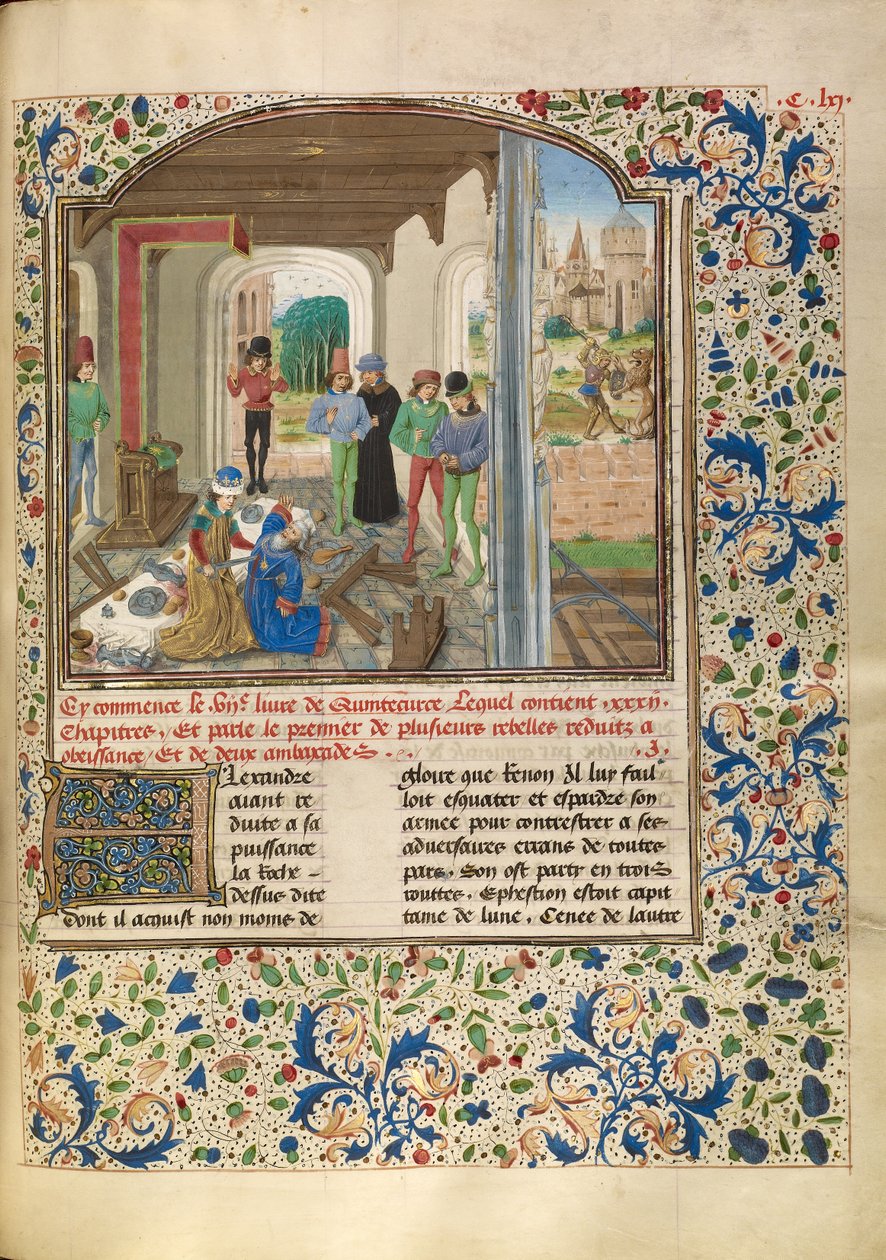 .C. lxj.
Cy commence le viije livre de Quintecurce Lequel contient .xxxij.
Chapitres, Et parle le premier de plusieurs rebelles reduitz a
obeissance, Et de deux ambaxades. .J.
Lexandre
aiant re
duite a sa
puissance
la Roche
dessus dite
dont il acquist non moins de
gloire que renon Il luy fail
loit esquater et espardre son
armee pour contrestrer a ses
adversaires errans de toutes
pars. Son ost party en trois
routtes. Ephestion estoit capit
taine de lune. Cenee de lautre